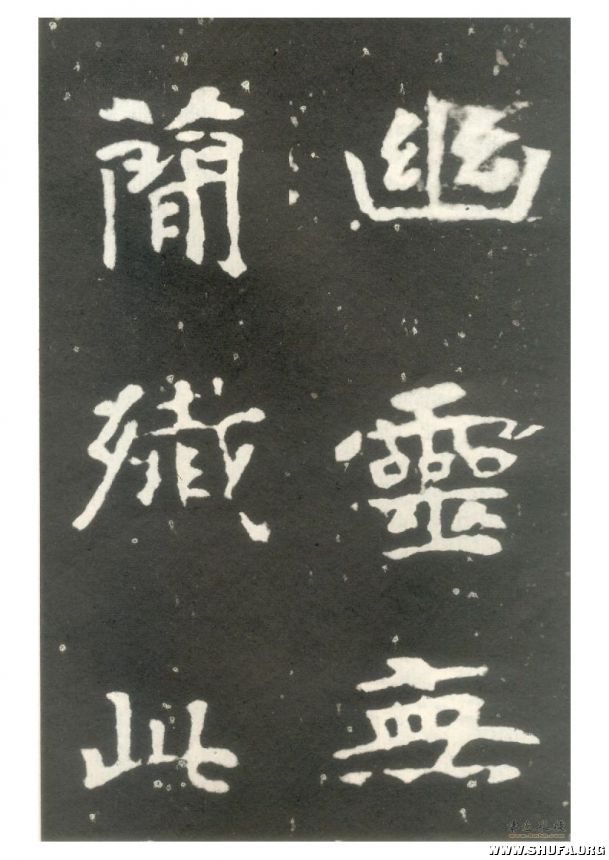 幽靈無
簡殲此
WWW.SHUFA.ORG